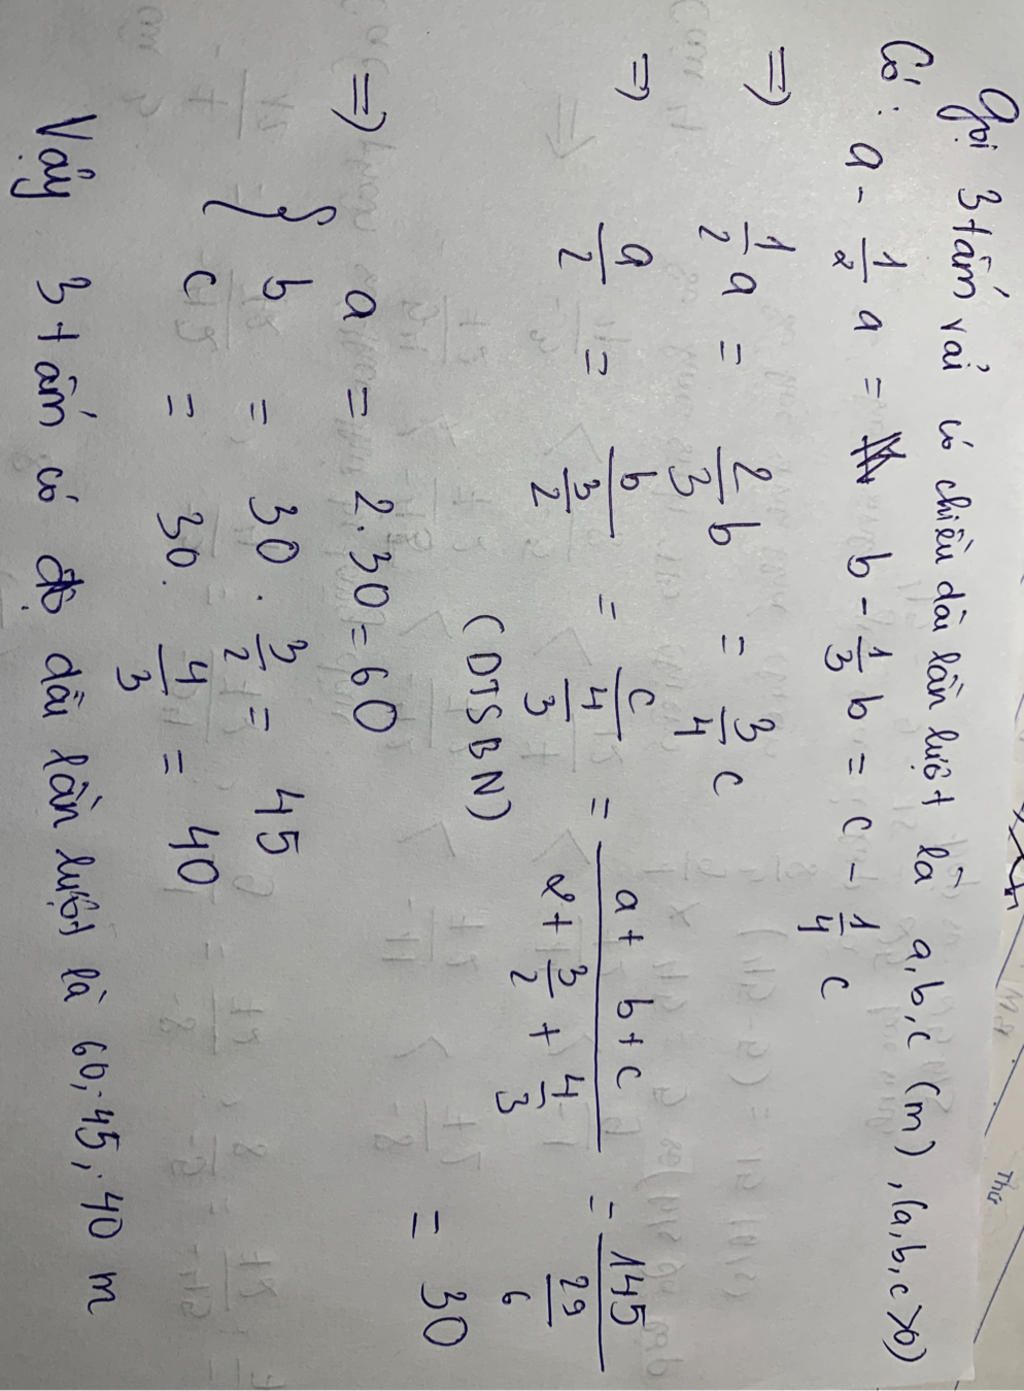 Thứ
Gọi 3 tấm vải có chiều dài lần lượt là a,b,c (m), (a,b,c >0)
Có: a - 1/2 a = b - 1/3 b = c - 1/4 c
=> 1/2 a = 2/3 b = 3/4 c
=> a/2 = b/(3/2) = c/(4/3) = (a + b + c)/(2 + 3/2 + 4/3) = 145/(29/6)
(DTSBN) = 30
=> { a = 2.30 = 60
b = 30 . 3/2 = 45
c = 30. 4/3 = 40
Vậy 3 tấm có độ dài lần lượt là 60; 45; 40 m